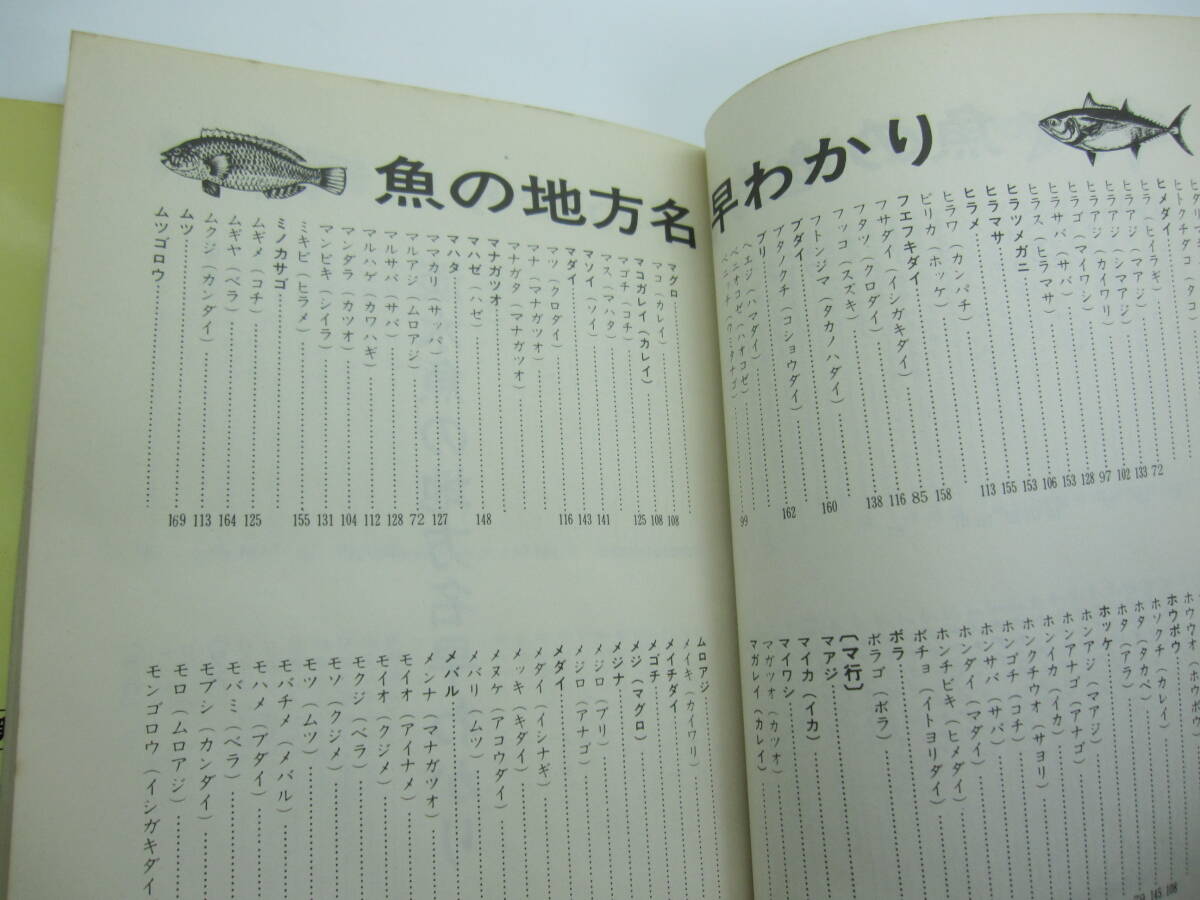 魚の地方名早わかり
ヒメダイ
ヒラ(ヒイラギ)……72
ヒラアジ(マアジ)……133
ヒラアジ(シマアジ)……102
ヒラアジ(カイワリ)……97
ヒラゴ(マイワシ)……128
ヒラサバ(サバ)……153
ヒラス(ヒラマサ)……106
ヒラツメガニ……153
ヒラマサ……155
ヒラメ……113
ヒラワ(カンパチ)
ビリカ(ホッケ)……158
フエフキダイ……85
フサダイ(イシガキダイ)……116
フタツ(クロダイ)……138
フッコ(スズキ)
フトンジマ(タカノハダイ)……160
ブダイ
ブタノクチ(コショウダイ)……162
ブリ
ヘエジ(ハマダイ)……99
ホウボウ
ホソクチ(カレイ)
ホタ(タカベ)
ホタ(アラ)
ホッケ
ホンアジ(マアジ)
ホンアナゴ(アナゴ)
ホンイカ(イカ)
ホンクチウオ(サヨリ)
ホンゴチ(コチ)
ホンサバ(サバ)
ホンダイ(マダイ)
ホンチビキ(ヒメダイ)
ボチョ(イトヨリダイ)
ボラ
ボラゴ(ボラ)
〔マ行〕
マアジ
マイカ(イカ)
マイワシ
マガツオ(カツオ)
マガレイ(カレイ)
マグロ……108
マコ(カレイ)……108
マコガレイ(カレイ)……125
マゴチ(コチ)
マス(マハタ)……141
マソイ(ソイ)……143
マダイ……116
マツ(クロダイ)
マナ(マナガツオ)
マナガタ(マナガツオ)
マナガツオ……148
マハゼ(ハゼ)
マハタ……127
マカリ(サッパ)
マルアジ(ムロアジ)……72
マルサバ(サバ)……128
マルハゲ(カワハギ)……112
マンダラ(カツオ)……104
マンビキ(シイラ)……131
ミキビ(ヒラメ)……155
ミノカサゴ
ムギメ(コチ)……125
ムギヤ(ベラ)……164
ムクジ(カンダイ)……113
ムツ……169
ムツゴロウ
ムロアジ
メイキ(カイワリ)
メイチダイ
メゴチ
メジ(マグロ)
メジナ
メジロ(ブリ)
メジロ(アナゴ)
メダイ
メダイ(イシナギ)
メッキ(キダイ)
メヌケ(アコウダイ)
メバリ(ムツ)
メバル
メンナ(マナガツオ)
モイオ(アイナメ)
モイオ(クジメ)
モクジ(ベラ)
モソ(クジメ)
モツ(ムツ)
モバチメ(メバル)
モハメ(ブダイ)
モバミ(ベラ)
モブシ(カンダイ)
モロ(ムロアジ)
モンゴロウ(イシガキダイ